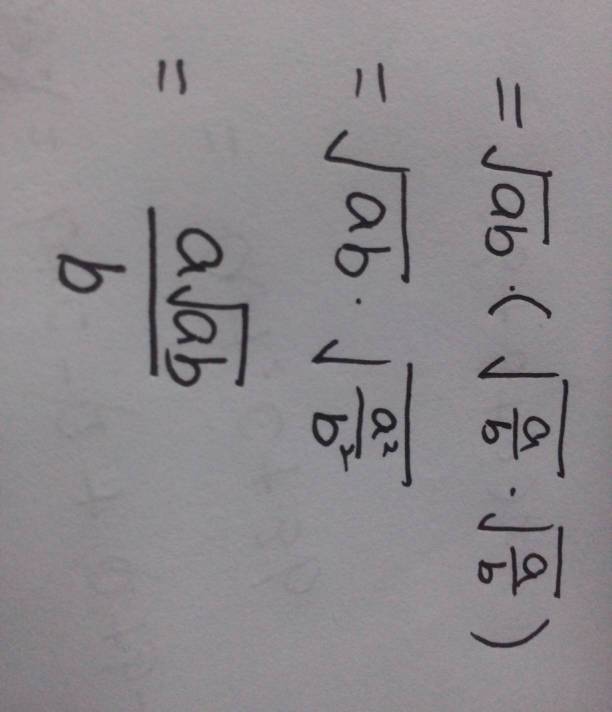 =√ab · (√a/b · √a/b)
=√ab · √a²/b²
= a√ab/b